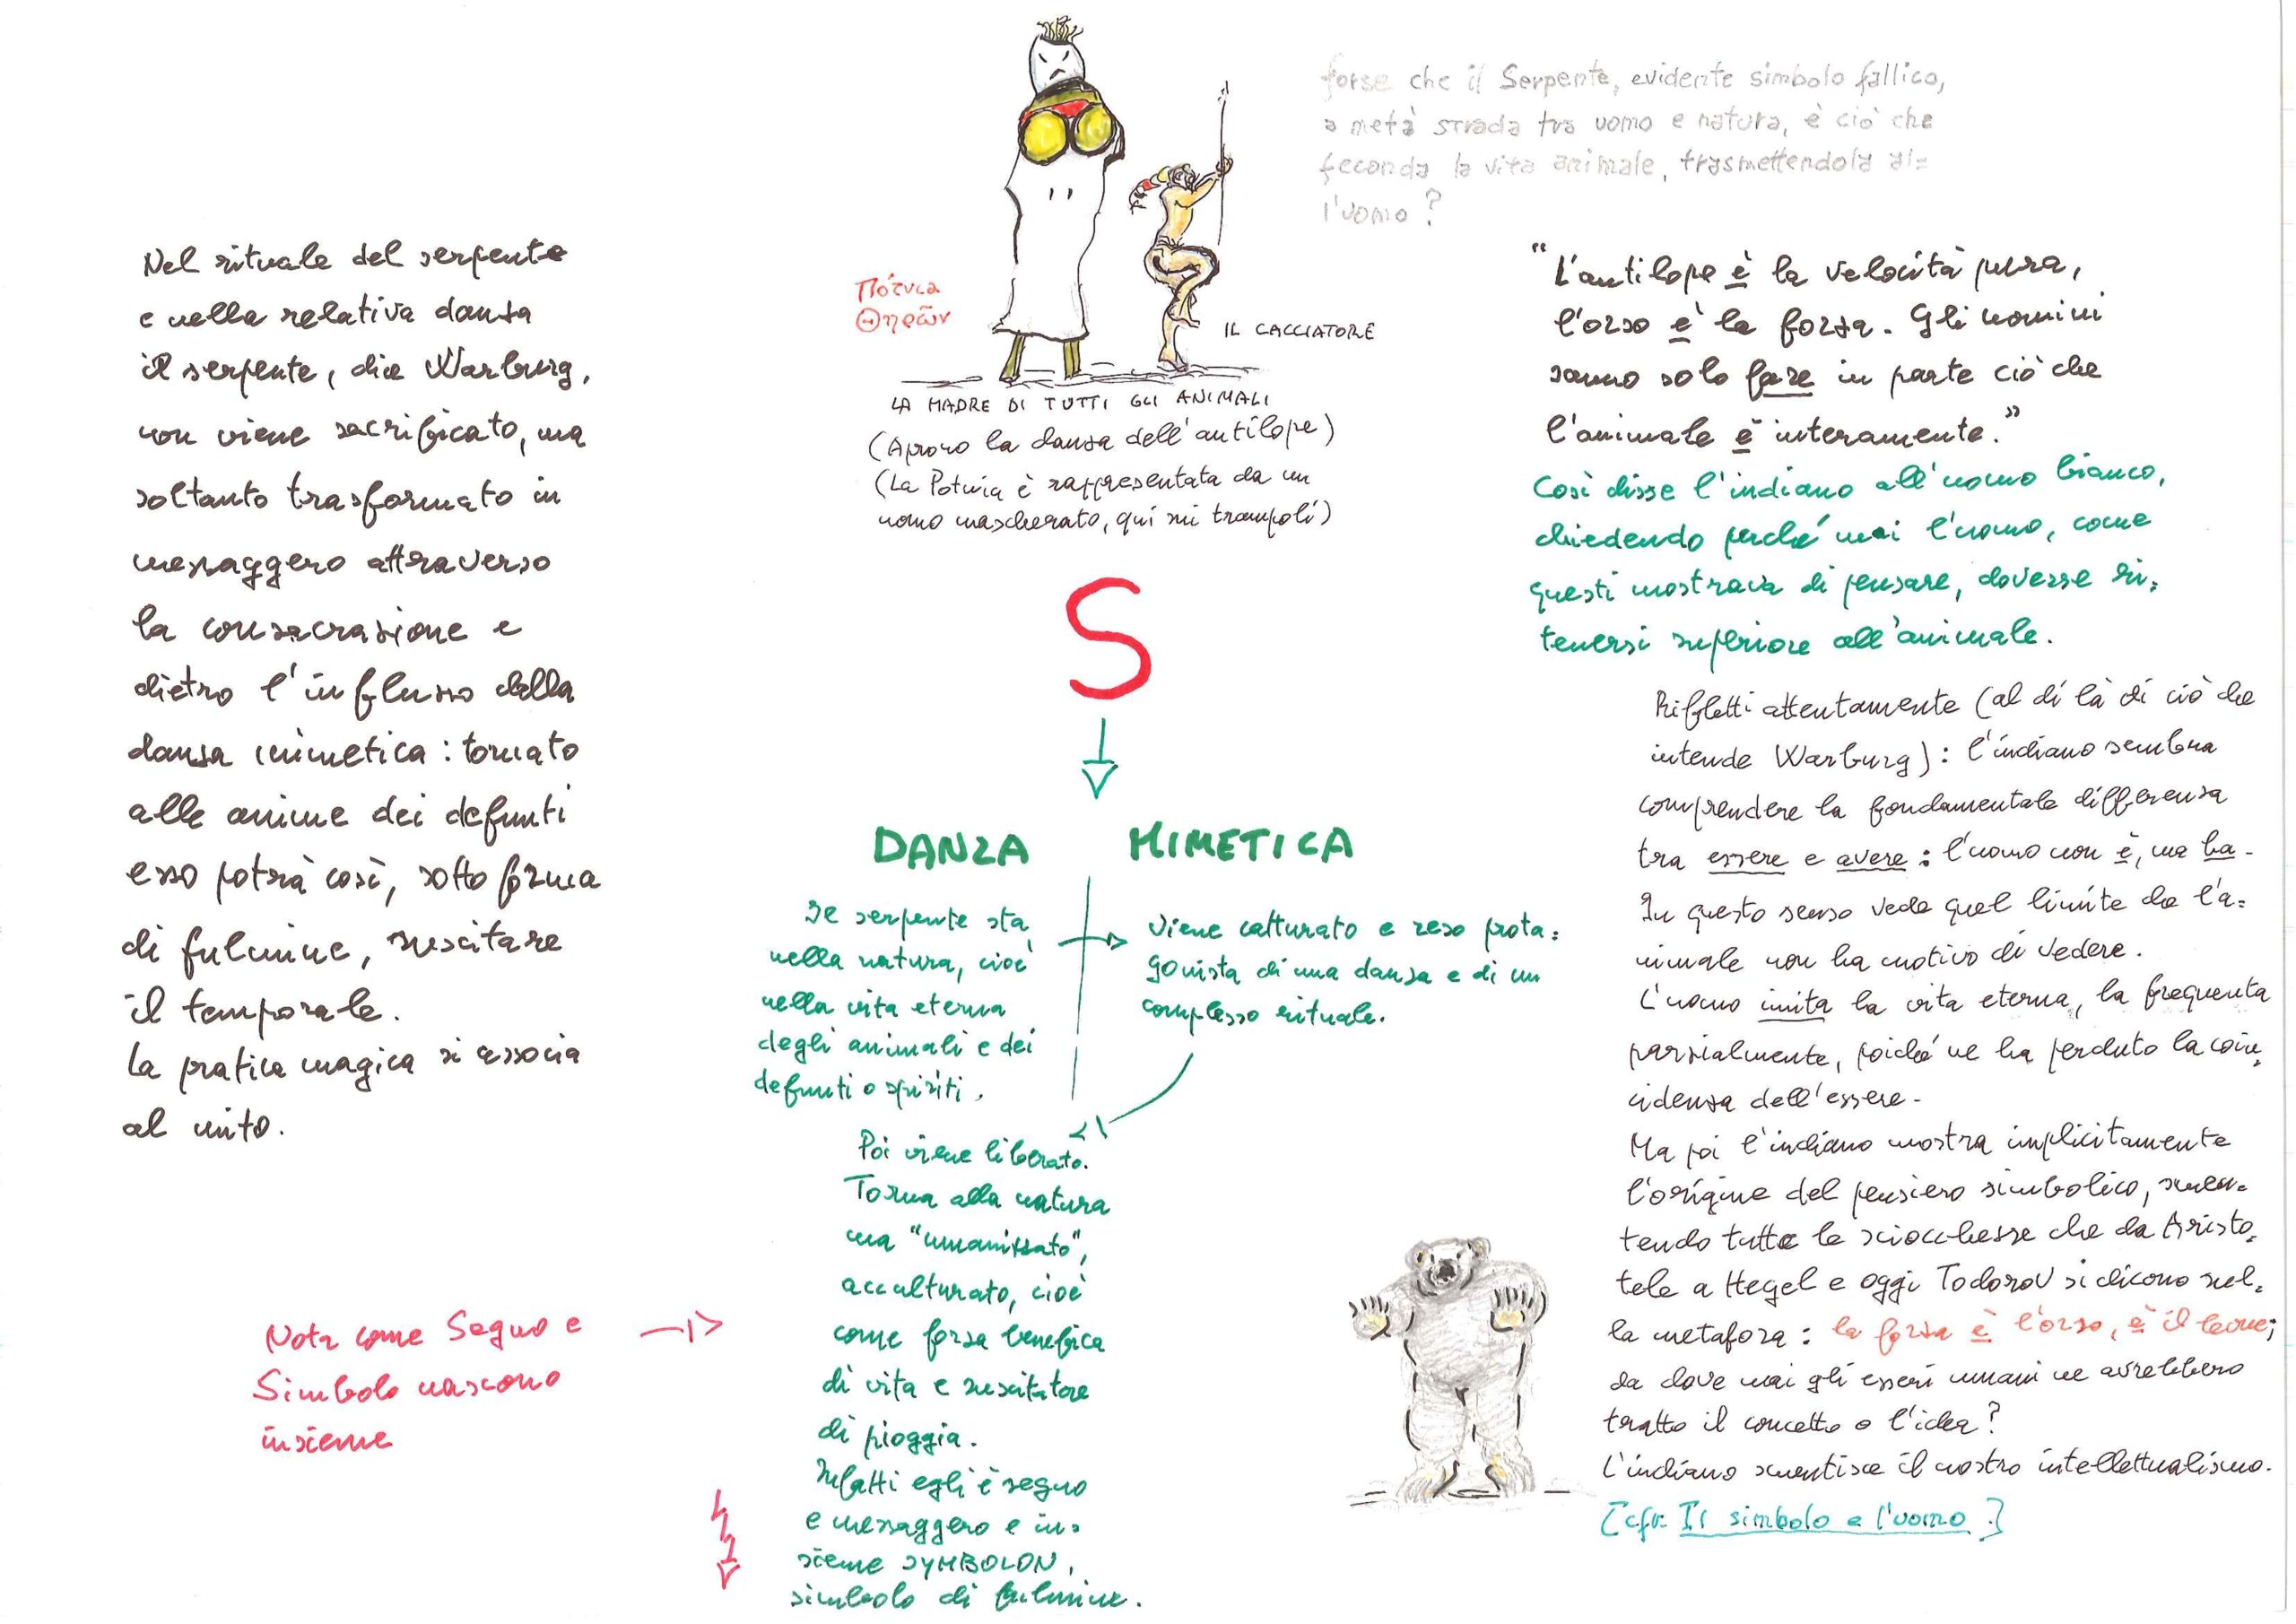 Nel rituale del serpente
e nella relativa danza
il serpente, dice Warburg,
non viene sacrificato, ma
soltanto trasformato in
messaggero attraverso
la consacrazione e
dietro l'influsso della
danza mimetica: tornato
alle anime dei defunti
esso potrà così, sotto forma
di fulmine, suscitare
il temporale.
La pratica magica si associa
al mito.
Nota come Segno e
Simbolo nascono
insieme
Πότνια
Θηρῶν
IL CACCIATORE
LA MADRE DI TUTTI GLI ANIMALI
(Aprono la danza dell'antilope)
(La Potnia è rappresentata da un
uomo mascherato, qui sui trampoli)
S
DANZA MIMETICA
Il serpente sta
nella natura, cioè
nella vita eterna
degli animali e dei
defunti o spiriti.
Viene catturato e reso prota=
gonista di una danza e di un
complesso rituale.
Poi viene liberato.
Torna alla natura
ma "umanizzato",
acculturato, cioè
come forza benefica
di vita e suscitatore
di pioggia.
Infatti egli è segno
e messaggero e in=
sieme SYMBOLON,
simbolo di fulmine.
forse che il Serpente, evidente simbolo fallico,
a metà strada tra uomo e natura, è ciò che
feconda la vita animale, trasmettendola al=
l'uomo?
"L'antilope è la velocità pura,
l'orso è la forza. Gli uomini
sanno solo fare in parte ciò che
l'animale è interamente."
Così disse l'indiano all'uomo bianco,
chiedendo perché mai l'uomo, come
questi mostrava di pensare, dovesse ri=
tenersi superiore all'animale.
Rifletti attentamente (al di là di ciò che
intende Warburg): l'indiano sembra
comprendere la fondamentale differenza
tra essere e avere: l'uomo non è, ma ha.
In questo senso vede quel limite che l'a=
nimale non ha motivo di vedere.
L'uomo imita la vita eterna, la frequenta
parzialmente, poiché ne ha perduto la coin=
cidenza dell'essere.
Ma poi l'indiano mostra implicitamente
l'origine del pensiero simbolico, smen=
tendo tutte le sciocchezze che da Aristo=
tele a Hegel e oggi Todorov si dicono sul=
la metafora: la forza è l'orso, è il leone;
da dove mai gli esseri umani ne avrebbero
tratto il concetto o l'idea?
L'indiano smentisce il nostro intellettualismo.
[cfr. Il simbolo e l'uomo.]